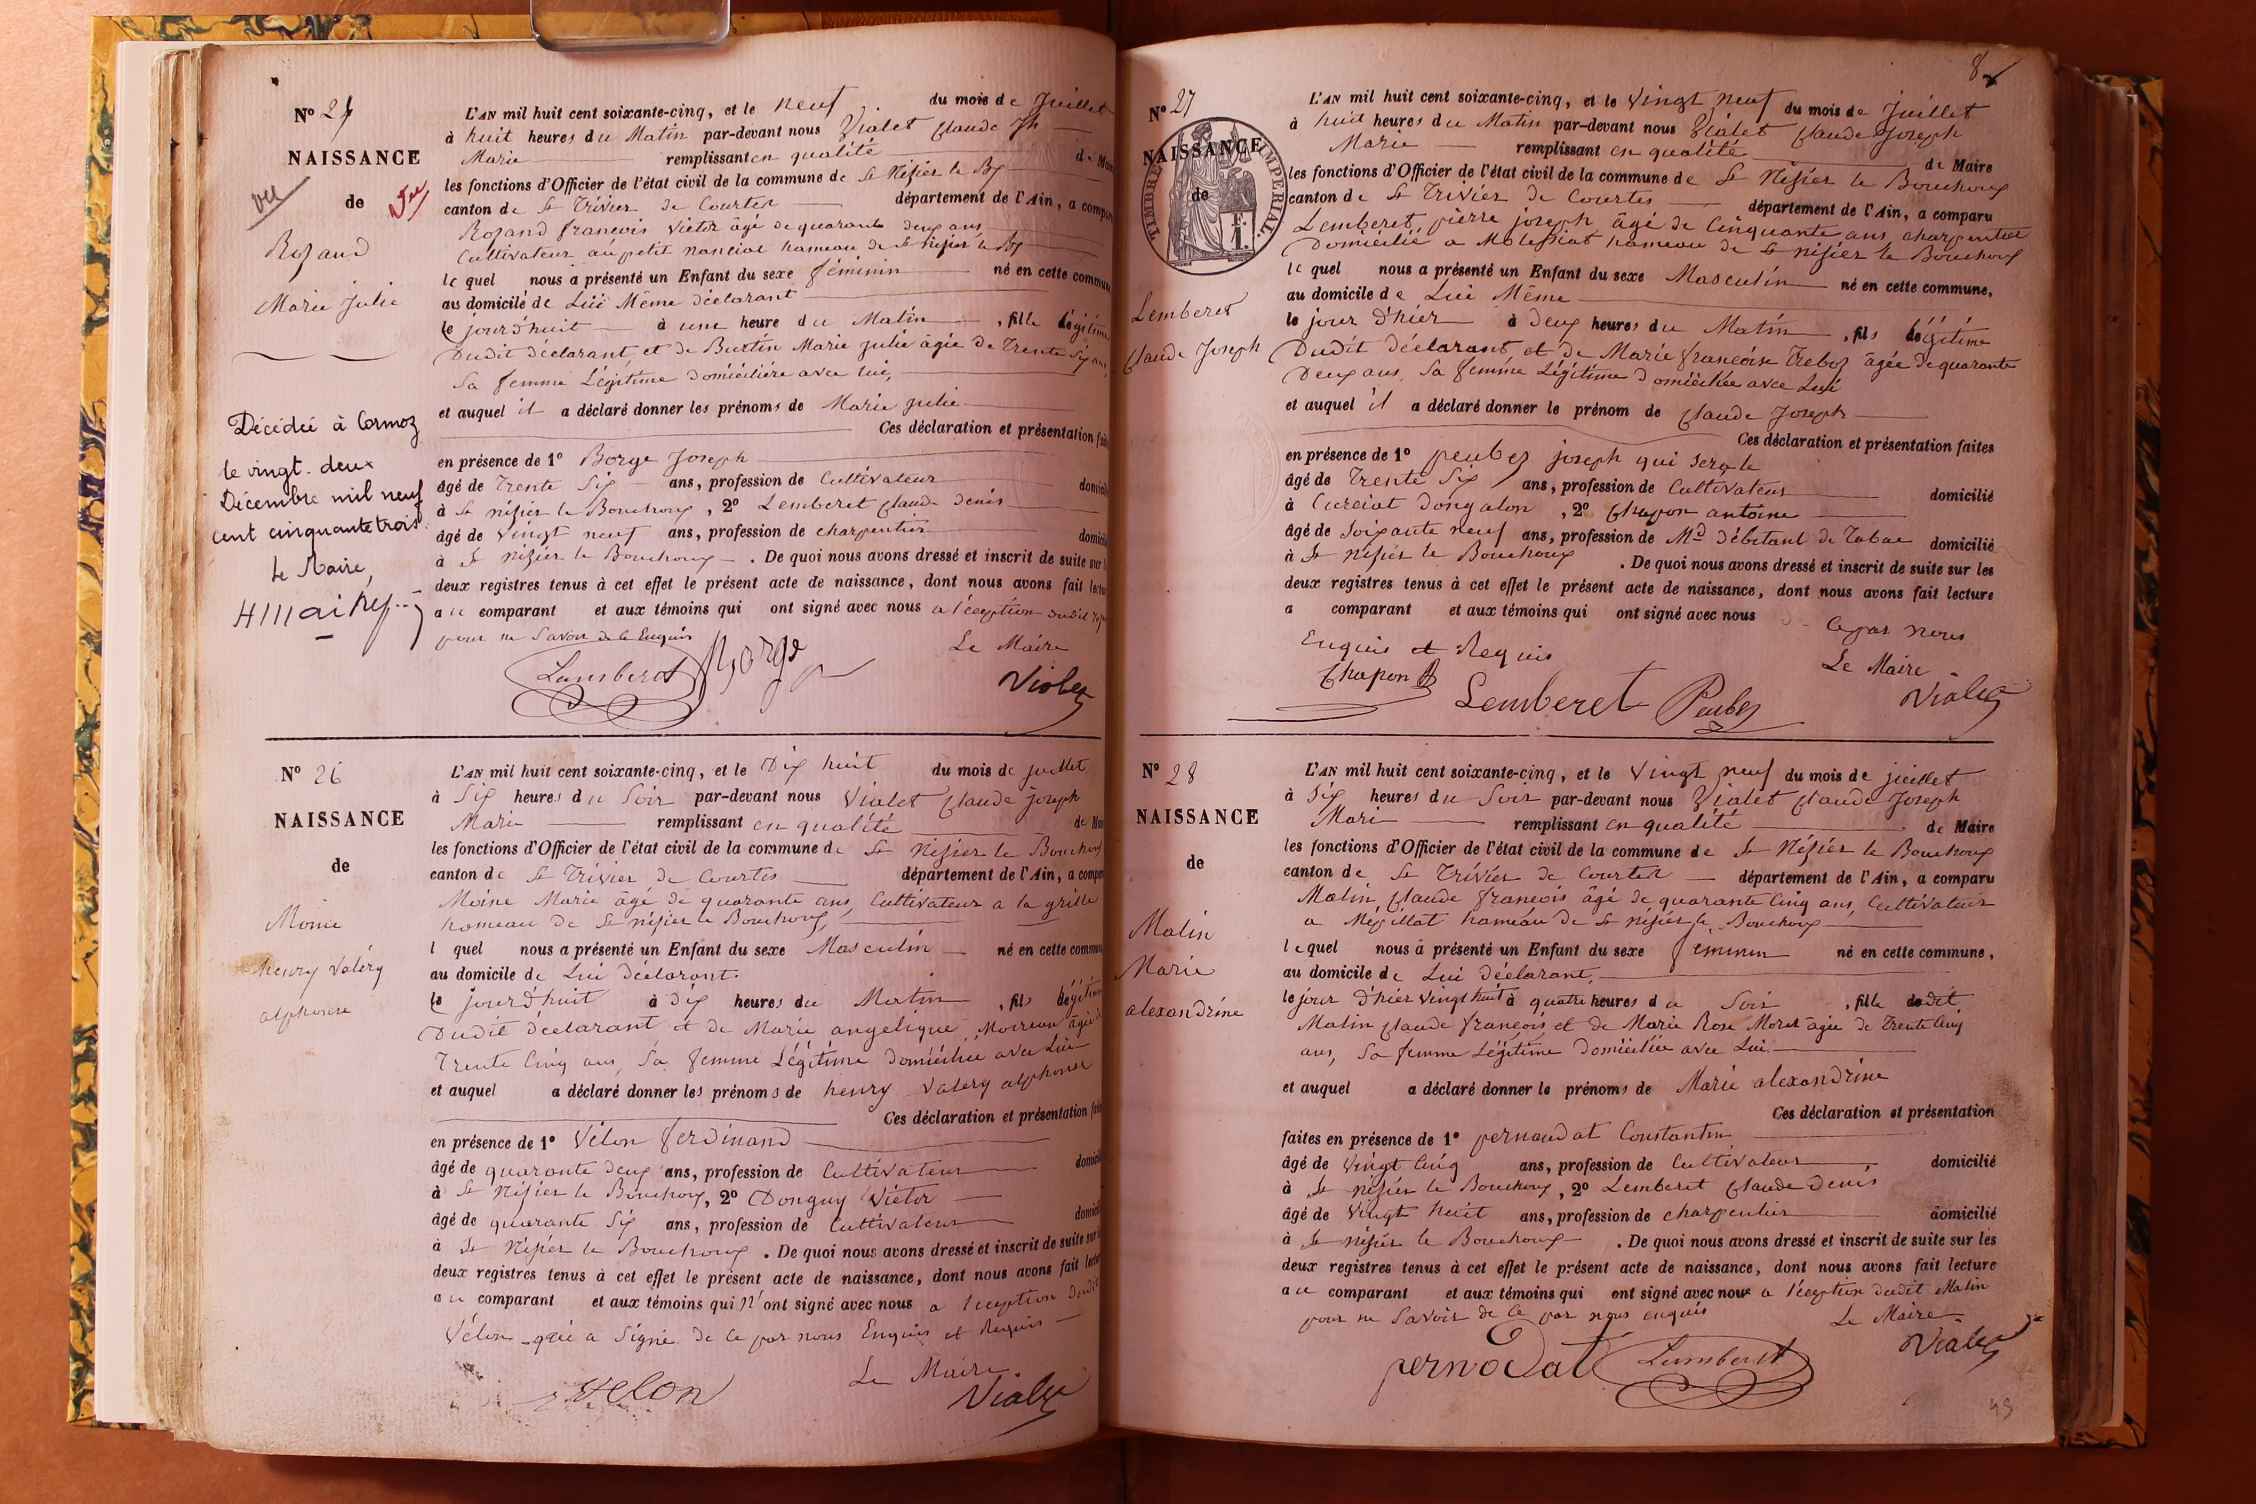 N° 25
NAISSANCE
vu
de
Vu
Rozand
Marie Julie
Décédée à Cormoz
le vingt-deux
Décembre mil neuf
cent cinquante trois
Le Maire,
L'AN mil huit cent soixante-cinq, et le neuf du mois de Juillet
à huit heures du Matin par-devant nous Vialet Claude Jh
Marie remplissant en qualité de Mai
les fonctions d'Officier de l'état civil de la commune de St Nisier le Bx
canton de St Trivier de Courtes département de l'Ain, a compar
Rozand françois Victor âgé de quarante deux ans
Cultivateur au petit nanciat hameau de St Nisier le Bx
lequel nous a présenté un Enfant du sexe féminin né en cette commun
au domicile de Lui Même déclarant
le jourd'huit à une heure du Matin, fille légitime
Dudit déclarant et de Burtin Marie julie âgée de Trente Six ans,
Sa femme Légitime domiciliére avec lui,
et auquel il a déclaré donner les prénoms de Marie julie
Ces déclaration et présentation fai
en présence de 1° Borge Joseph
âgé de Trente Six ans, profession de Cultivateur domicil
à St nisier le Bouchoux, 2° Lemberet Claude denis
âgé de vingt neuf ans, profession de charpentier domicil
à St nizier le Bouchoux. De quoi nous avons dressé et inscrit de suite sur l
deux registres tenus à cet effet le présent acte de naissance, dont nous avons fait lectu
au comparant et aux témoins qui ont signé avec nous a l'éception dudit
pour ne Savoir de le Enquis
Le Maire
Lemberet Borge Vialet
N° 26
NAISSANCE
de
Moine
henry Valéry
alphonse
L'AN mil huit cent soixante-cinq, et le Dix huit du mois de juillet
à Six heures du Soir par-devant nous Vialet Claude joseph
Marie remplissant en qualité de Mai
les fonctions d'Officier de l'état civil de la commune de St Nisier le Bouchoux
canton de St Trivier de Courtes département de l'Ain, a compar
Moine Marie âgé de quarante ans, Cultivateur a la grille
hameau de St nisier le Bouchoux,
l quel nous a présenté un Enfant du sexe Masculin né en cette commun
au domicile de Lui déclarant.
le jourd'huit à dix heures du Matin, fils légitime
Dudit déclarant et de Marie angelique Moireau âgée de
Trente Cinq ans, Sa femme Légitime domiciliée avec Lui
et auquel a déclaré donner les prénoms de henry Valery alphonse
Ces déclaration et présentation fai
en présence de 1° Vélon ferdinand
âgé de quarante deux ans, profession de Cultivateur domicil
à St Nisier le Bouchoux, 2° Donguy Victor
âgé de quarante Six ans, profession de Cultivateur domicil
à St Nisier le Bouchoux. De quoi nous avons dressé et inscrit de suite sur l
deux registres tenus à cet effet le présent acte de naissance, dont nous avons fait lectu
au comparant et aux témoins qui n'ont signé avec nous a l'eception dudit
Vélon qui a Signé de Ce par nous Enquis et Requis
Le Maire
Velon Vialet
8
N° 27
NAISSANCE
de
TIMBRE IMPÉRIAL
1 F.
Lemberet
Claude Joseph
L'AN mil huit cent soixante-cinq, et le vingt neuf du mois de Juillet
à huit heures du Matin par-devant nous Vialet Claude Joseph
Marie remplissant en qualité de Maire
les fonctions d'Officier de l'état civil de la commune de St Nisier le Bouchoux
canton de St Trivier de Courtes département de l'Ain, a comparu
Lemberet pierre joseph âgé de Cinquante ans charpentier
Domicilié a Molessiat hameau de St nisier le Bouchoux
lequel nous a présenté un Enfant du sexe Masculin né en cette commune,
au domicile de Lui Même
le jour d'hier à deux heures du Matin, fils légitime
Dudit déclarant et de Marie françoise Treboz âgée de quarante
Deux ans, Sa femme Légitime domiciliée avec Lui
et auquel il a déclaré donner le prénom de Claude Joseph
Ces déclaration et présentation faites
en présence de 1° peubez joseph
âgé de Trente Six ans, profession de Cultivateur domicilié
à Curciat dongalon, 2° Chapon antoine
âgé de Soixante neuf ans, profession de Md débitant de Tabac domicilié
à St Nisier le Bouchoux. De quoi nous avons dressé et inscrit de suite sur les
deux registres tenus à cet effet le présent acte de naissance, dont nous avons fait lecture
a comparant et aux témoins qui ont signé avec nous
Ce par nous
Enquis et Requis
Le Maire
Chapon Lemberet Peubez Vialet
N° 28
NAISSANCE
de
Malin
Marie
alexandrine
L'AN mil huit cent soixante-cinq, et le vingt neuf du mois de juillet
à Six heures du Soir par-devant nous Vialet Claude Joseph
Mari remplissant en qualité de Maire
les fonctions d'Officier de l'état civil de la commune de St Nisier le Bouchoux
canton de St Trivier de Courtes département de l'Ain, a comparu
Malin Claude françois âgé de quarante Cinq ans, Cultivateur
a Mézillat hameau de St Nisier le Bouchoux
lequel nous a présenté un Enfant du sexe feminin né en cette commune,
au domicile de Lui déclarant,
le jour d'hier vingt huit à quatre heures du Soir, fille dudit
Malin Claude françois et de Marie Rose Morel âgée de Trente Cinq
ans, Sa femme Légitime domiciliée avec Lui
et auquel a déclaré donner le prénoms de Marie alexandrine
Ces déclaration et présentation
faites en présence de 1° pernaudat Constantin
âgé de vingt Cinq ans, profession de Cultivateur domicilié
à St nisier le Bouchoux, 2° Lemberet Claude denis
âgé de vingt huit ans, profession de charpentier domicilié
à St nisier le Bouchoux. De quoi nous avons dressé et inscrit de suite sur les
deux registres tenus à cet effet le présent acte de naissance, dont nous avons fait lecture
au comparant et aux témoins qui ont signé avec nous a l'éception dudit Malin
pour ne Savoir de Ce par nous enquis
Le Maire
pernodat Lemberet Vialet
49